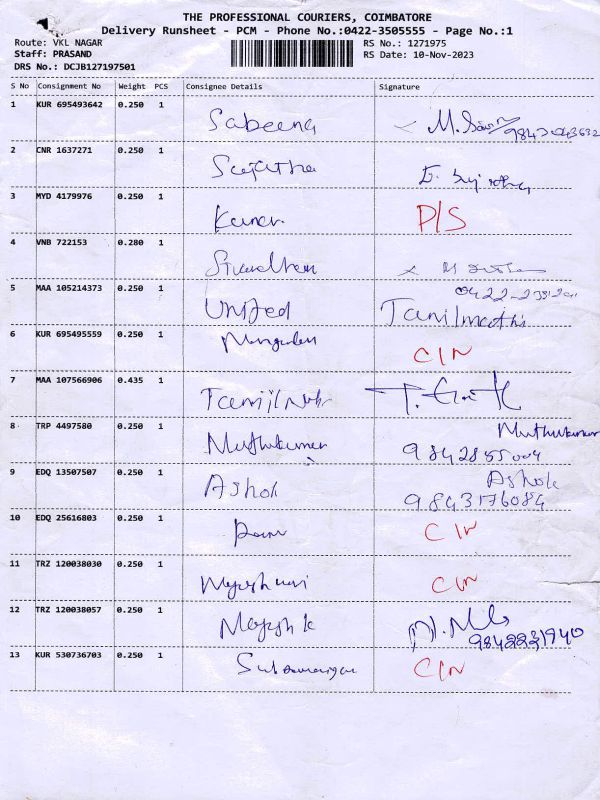 THE PROFESSIONAL COURIERS, COIMBATORE
Delivery Runsheet - PCM - Phone No.:0422-3505555 - Page No.:1
Route: VKL NAGAR RS No.: 1271975
Staff: PRASAND RS Date: 10-Nov-2023
DRS No.: DCJB127197501
S No Consignment No Weight PCS Consignee Details Signature
1 KUR 695493642 0.250 1 Sabeena
2 CNR 1637271 0.250 1 Sujatha
3 MYD 4179976 0.250 1 Kumar P/S
4 VNB 722153 0.280 1
5 MAA 105214373 0.250 1 United Tamilmathi
6 KUR 695495559 0.250 1 CIN
7 MAA 107566906 0.435 1 Tamil
8 TRP 4497580 0.250 1 Muthukumar Muthukumar
9842855004
9 EDQ 13507507 0.250 1 Ashok Ashok
9843176084
10 EDQ 25616803 0.250 1 CIN
11 TRZ 120038030 0.250 1 CIN
12 TRZ 120038057 0.250 1
9842231940
13 KUR 530736703 0.250 1 CIN